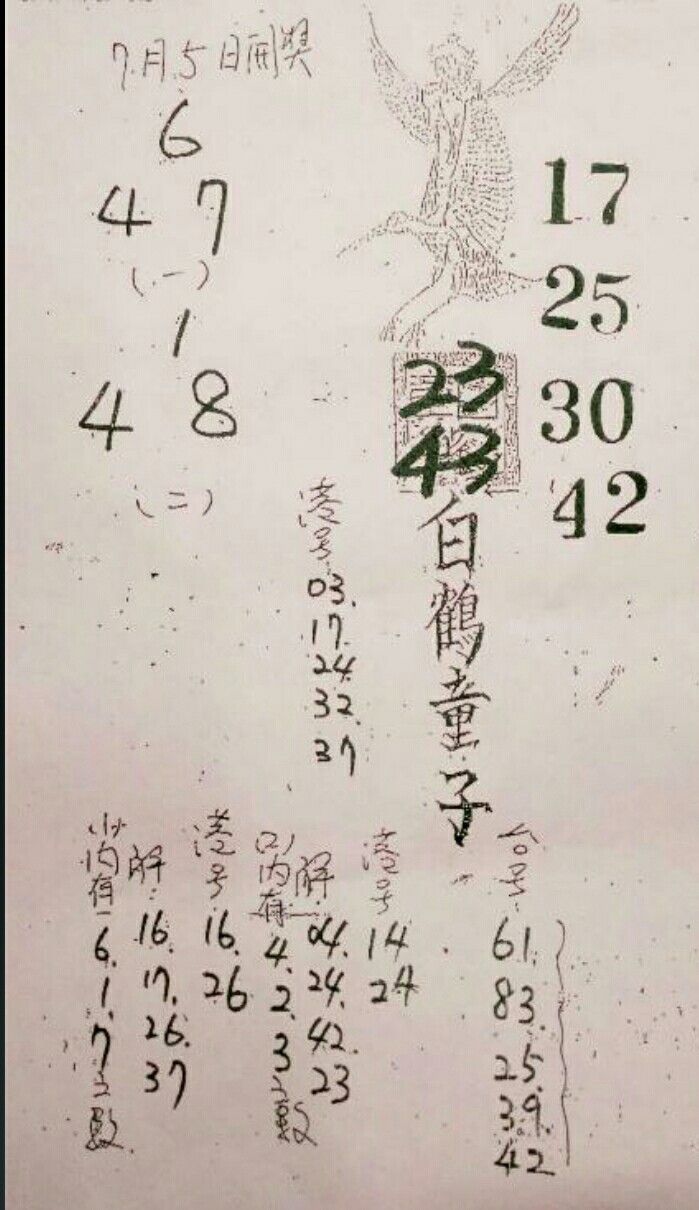 7月5日開獎
6
4 7
(一)
1
4 8
(二)
17
25
30
42
23
43
白鶴童子
港号:
03.
17.
24.
32.
37
台号:
61.
83.
25.
39.
42
港号
14
24
解:
04.
24.
42.
23
(2)内有
4.
2.
3
之數
港号
16.
26
解:
16.
17.
26.
37
(1)内有
6.
1.
7
之數